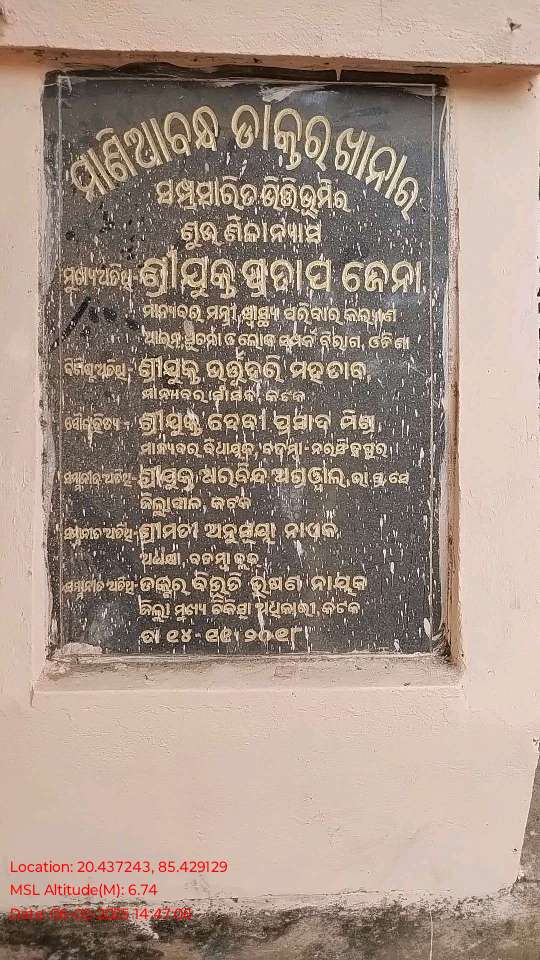 ମାଣିଆବନ୍ଧ ଡାକ୍ତରଖାନାର
ସମ୍ପ୍ରସାରିତ ଭିତ୍ତିଭୂମିର
ଶୁଭ ଶିଳାନ୍ୟାସ
ମୁଖ୍ୟଅତିଥି- ଶ୍ରୀଯୁକ୍ତ ପ୍ରତାପ ଜେନା,
ମାନ୍ୟବର ମନ୍ତ୍ରୀ, ସ୍ୱାସ୍ଥ୍ୟ ପରିବାର କଲ୍ୟାଣ
ଆଇନ, ସୂଚନା ଓ ଲୋକ ସମ୍ପର୍କ ବିଭାଗ, ଓଡିଶା
ବିଶିଷ୍ଟଅତିଥି- ଶ୍ରୀଯୁକ୍ତ ଭର୍ତ୍ତୃହରି ମହତାବ,
ମାନ୍ୟବର ସାଂସଦ, କଟକ
ପୌରୋହିତ୍ୟ - ଶ୍ରୀଯୁକ୍ତ ଦେବୀ ପ୍ରସାଦ ମିଶ୍ର,
ମାନ୍ୟବର ବିଧାୟକ, ବଡମ୍ବା - ନରସିଂହପୁର
ସମ୍ମାନୀତ ଅତିଥି- ଶ୍ରୀଯୁକ୍ତ ଅରବିନ୍ଦ ଅଗ୍ରୱାଲ, ଭା.ପ୍ର.ସେ
ଜିଲ୍ଲାପାଳ, କଟକ
ସମ୍ମାନୀତ ଅତିଥି- ଶ୍ରୀମତୀ ଅନୁସୂୟା ନାଏକ,
ଅଧ୍ୟକ୍ଷା, ବଡମ୍ବା ବ୍ଲକ
ସମ୍ମାନୀତ ଅତିଥି- ଡାକ୍ତର ବିଭୂତି ଭୂଷଣ ନାୟକ
ଜିଲ୍ଲା ମୁଖ୍ୟ ଚିକିତ୍ସା ଅଧିକାରୀ, କଟକ
ତା ୧୪
Location: 20.437243, 85.429129
MSL Altitude(M): 6.74
Date: 06-02-2025 14:47:08